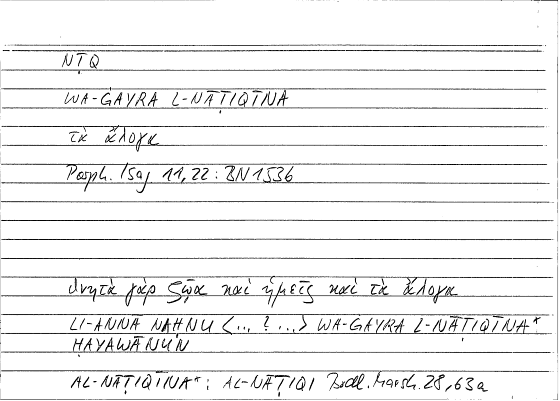 NṬQ
WA-ĠAYRA L-NĀṬIQĪNA
τὰ ἄλογα
Porph. Isag 11,22: BN 1536
θνητὰ γάρ ζῷα καὶ ἡμεῖς καὶ τὰ ἄλογα
LI-ANNĀ NAḤNU <... ? ...> WA-ĠAYRA L-NĀṬIQĪNA*
ḤAYAWĀNUN
AL-NĀṬIQĪNA*: AL-NĀṬIQI Bodl. Marsh. 28, 63a